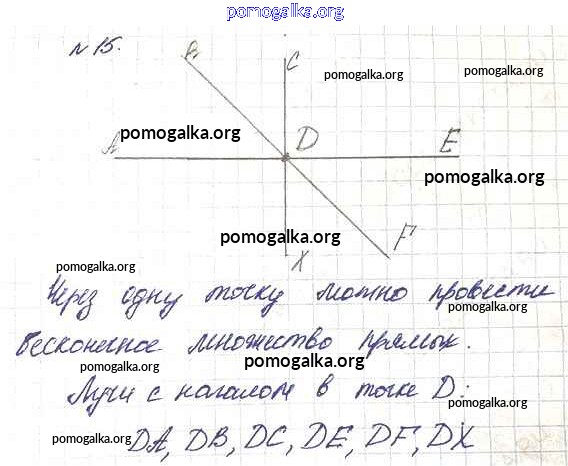 pomogalka.org
№15.
B C
pomogalka.org pomogalka.org
pomogalka.org
A D E
pomogalka.org
pomogalka.org
X F
pomogalka.org
Через одну точку можно провести
pomogalka.org
бесконечное множество прямых.
pomogalka.org pomogalka.org
Лучи с началом в точке D:
pomogalka.org
pomogalka.org
DA, DB, DC, DE, DF, DX